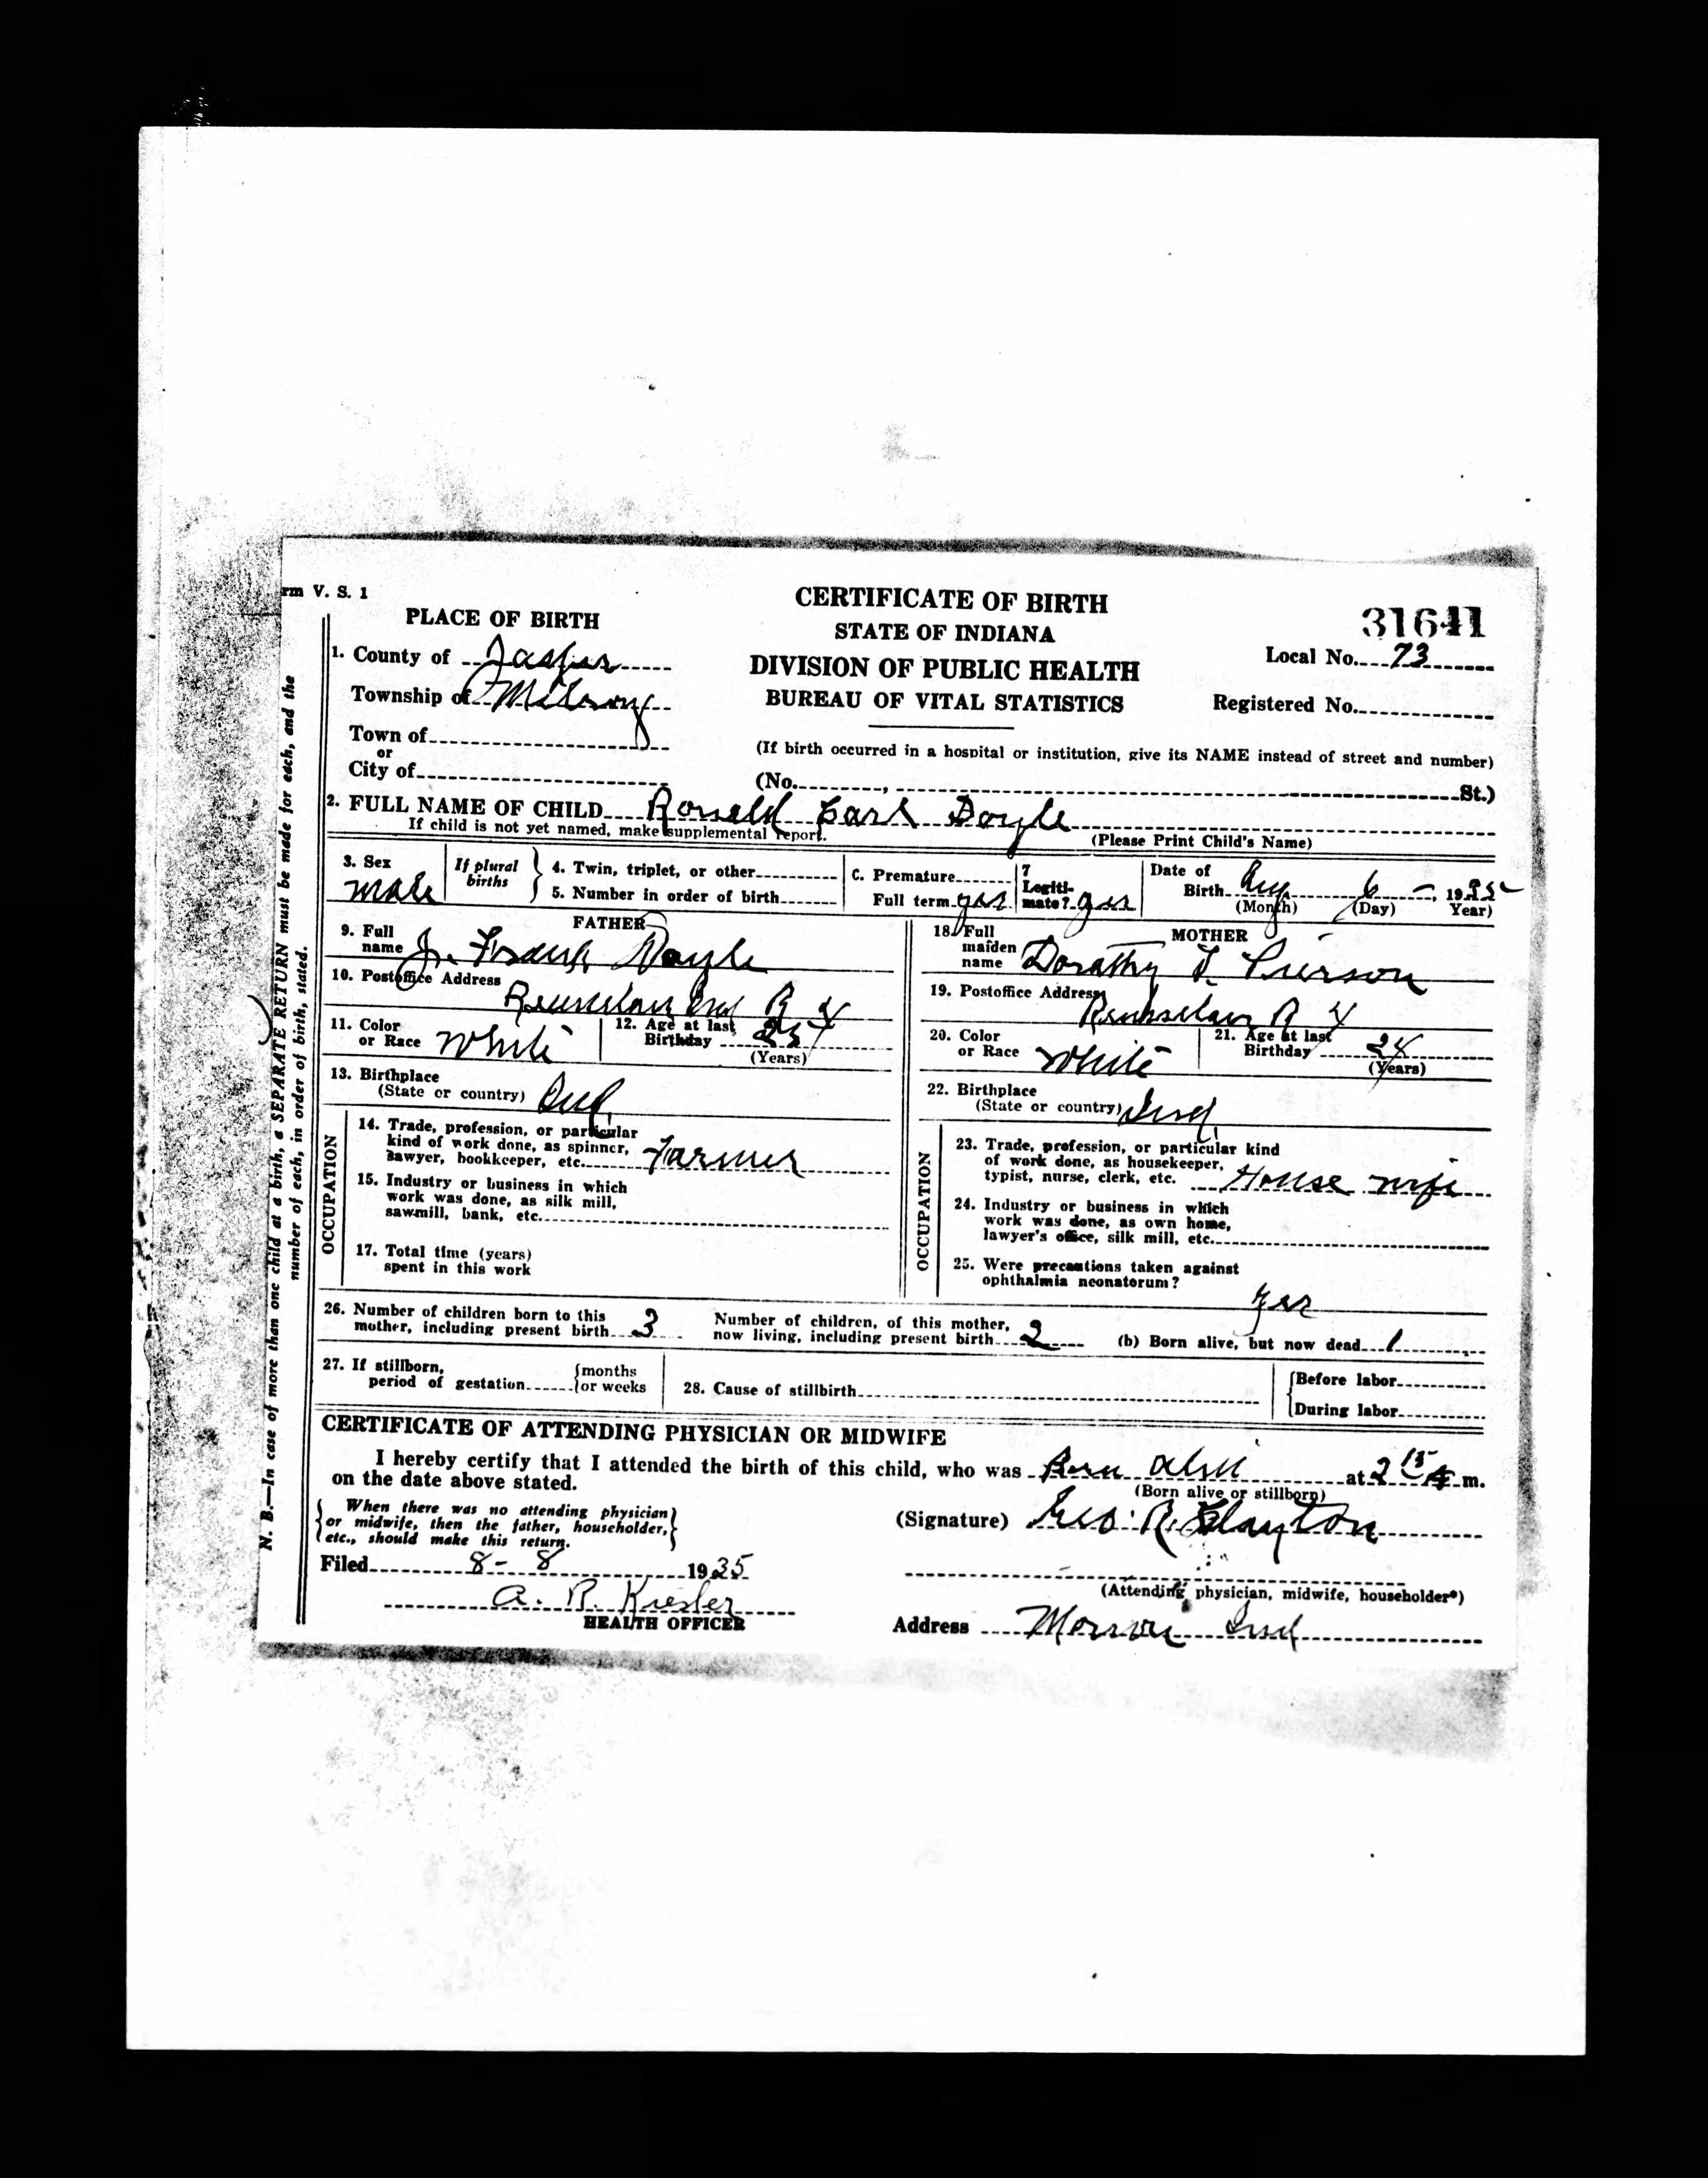 rm V. S. 1
CERTIFICATE OF BIRTH
STATE OF INDIANA
DIVISION OF PUBLIC HEALTH
BUREAU OF VITAL STATISTICS
31641
Local No. 73
Registered No.
PLACE OF BIRTH
1. County of Jasper
Township of Milroy
Town of
or
City of
(If birth occurred in a hospital or institution, give its NAME instead of street and number)
(No. , St.)
2. FULL NAME OF CHILD Ronald Earl Doyle
If child is not yet named, make supplemental report. (Please Print Child's Name)
3. Sex male
If plural births
4. Twin, triplet, or other
5. Number in order of birth
C. Premature
Full term yes
7 Legiti-
mate? yes
Date of
Birth Aug 6 - 1935
(Month) (Day) Year)
FATHER
9. Full
name J. Frank Doyle
10. Postoffice Address
Rensselaer Ind R 4
11. Color
or Race White
12. Age at last
Birthday
(Years)
13. Birthplace
(State or country) Ind.
OCCUPATION
14. Trade, profession, or particular
kind of work done, as spinner,
sawyer, bookkeeper, etc. Farmer
15. Industry or business in which
work was done, as silk mill,
sawmill, bank, etc.
17. Total time (years)
spent in this work
MOTHER
18. Full
maiden
name Dorathy I. Pierson
19. Postoffice Address
Rensselaer R 4
20. Color
or Race White
21. Age at last
Birthday 24
(Years)
22. Birthplace
(State or country) Ind.
OCCUPATION
23. Trade, profession, or particular kind
of work done, as housekeeper,
typist, nurse, clerk, etc. House wife
24. Industry or business in which
work was done, as own home,
lawyer's office, silk mill, etc.
25. Were precautions taken against
ophthalmia neonatorum?
yes
26. Number of children born to this
mother, including present birth 3
Number of children, of this mother,
now living, including present birth 2
(b) Born alive, but now dead 1
27. If stillborn,
period of gestation {months
{or weeks
28. Cause of stillbirth
{Before labor
{During labor
CERTIFICATE OF ATTENDING PHYSICIAN OR MIDWIFE
I hereby certify that I attended the birth of this child, who was Born alive at 2 15 A m.
on the date above stated. (Born alive or stillborn)
{When there was no attending physician}
{or midwife, then the father, householder,}
{etc., should make this return.
(Signature) Geo. R. Clayton
(Attending physician, midwife, householder*)
Filed 8-8 1935
A. R. Kresler
HEALTH OFFICER
Address Monon Ind
N. B.—In case of more than one child at a birth, a SEPARATE RETURN must be made for each, and the
number of each, in order of birth, stated.